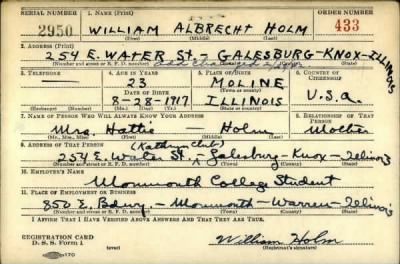 SERIAL NUMBER 1. NAME (Print) ORDER NUMBER
2950 WILLIAM ALBRECHT HOLM 433
(First) (Middle) (Last)
2. ADDRESS (Print)
254 E. WATER ST - GALESBURG-KNOX-ILLINOIS
(Number and street or R. F. D. number) (Town) (County) (State)
3. TELEPHONE 4. AGE IN YEARS 5. PLACE OF BIRTH 6. COUNTRY OF CITIZENSHIP
23 MOLINE
DATE OF BIRTH
8-28-1917 ILLINOIS U.S.a.
(Exchange) (Number) (Mo.) (Day) (Yr.) (State or country)
7. NAME OF PERSON WHO WILL ALWAYS KNOW YOUR ADDRESS 8. RELATIONSHIP OF THAT PERSON
Mrs. Hattie — Holm Mother
(Mr., Mrs., Miss) (First) (Middle) (Last)
9. ADDRESS OF THAT PERSON
254 E Water St. Galesburg - Knox - Illinois
(Number and street or R. F. D. number) (Town) (County) (State)
10. EMPLOYER'S NAME
Monmouth College Student
11. PLACE OF EMPLOYMENT OR BUSINESS
850 E. Bdwy. - Monmouth - Warren - Illinois
(Number and street or R. F. D. number) (Town) (County) (State)
I AFFIRM THAT I HAVE VERIFIED ABOVE ANSWERS AND THAT THEY ARE TRUE.
REGISTRATION CARD
D. S. S. Form 1 (over) William Holm
(Registrant's signature)